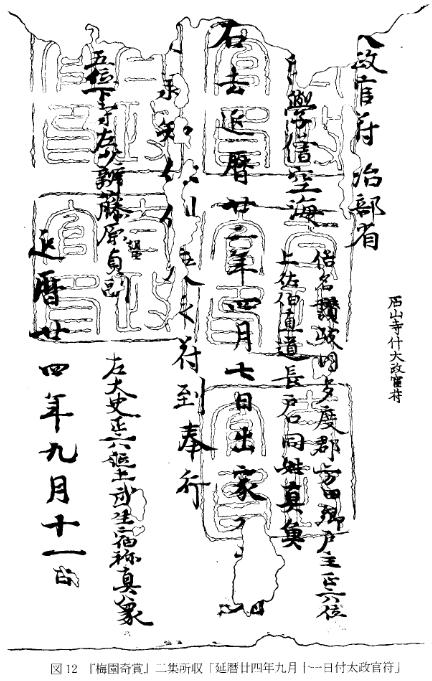 石山寺什大政官符
政官符 治部省
學僧空海
俗名讚岐国多度郡方田郷戸主正六位
上佐伯直道長戸口同姓真魚
右去延暦廿二年四月七日出家
承知 符到奉行
五位下守左少辨藤原貞副
左大史正六位上武生宿祢真象
延暦廿四年九月十一日
図12 『梅園奇賞』二集所収「延暦廿四年九月十一日付太政官符」